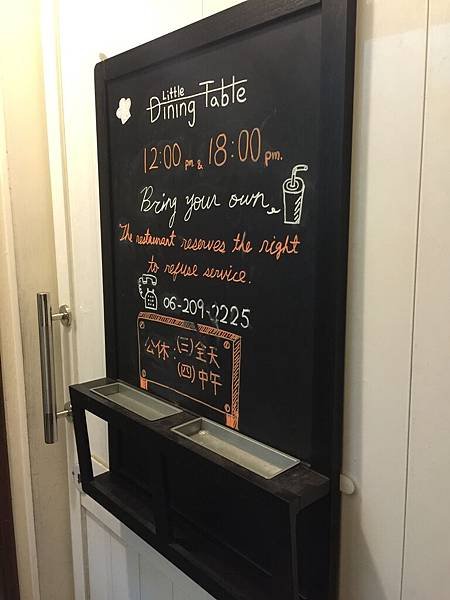 Little
Dining Table
12:00 pm & 18:00 pm.
Bring your own
The restaurant reserves the right
to refuse service.
06-209-2225
公休：(三)全天
(四)中午